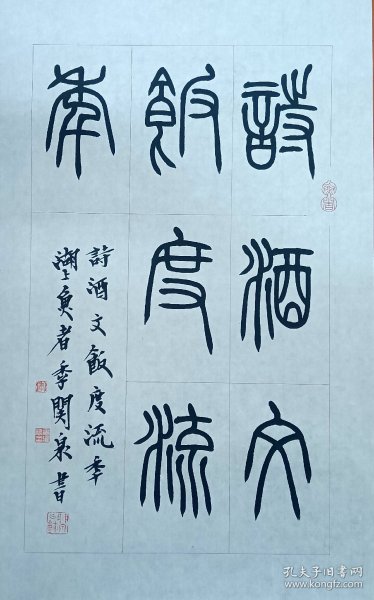 詩酒文
飯度流
年
詩酒文飯度流年
湖上魚者季関泉書
孔夫子旧书网